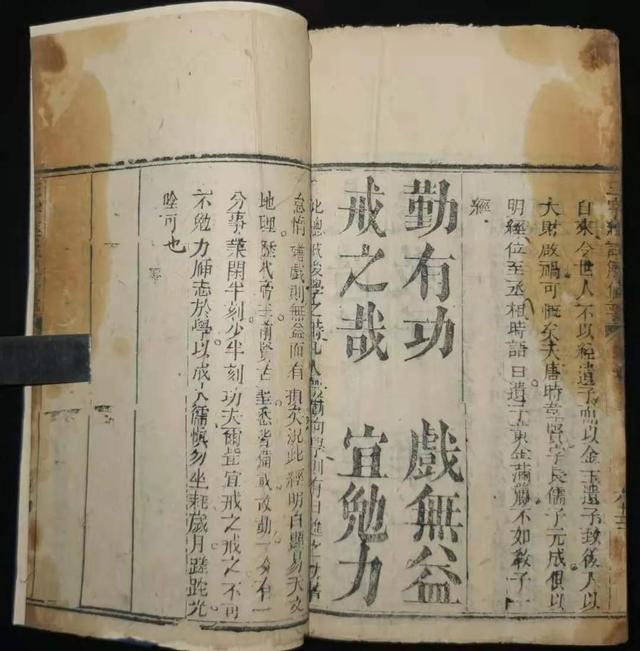 三字經註解備要
自來今世人不以經遺子而以金玉遺子致後人以
大財啟禍可慨矣夫唐時韋賢字長儒子元成俱以
明經位至丞相時語曰遺子黃金滿籯不如教子一
經
勤有功 戲無益
戒之哉 宜勉力
此總戒後學之時凡人當勤向學則有日進之功若
怠惰嬉戲則無益而有損矣況此經明白顯易天文
地理歷代帝王前賢古聖悉皆備載故勤一分有一
分事業閑半刻少半刻功夫爾豈宜戒之戒之不可
不勉力師志於學以成大儒慎勿坐耗歲月蹉跎光
陰可也